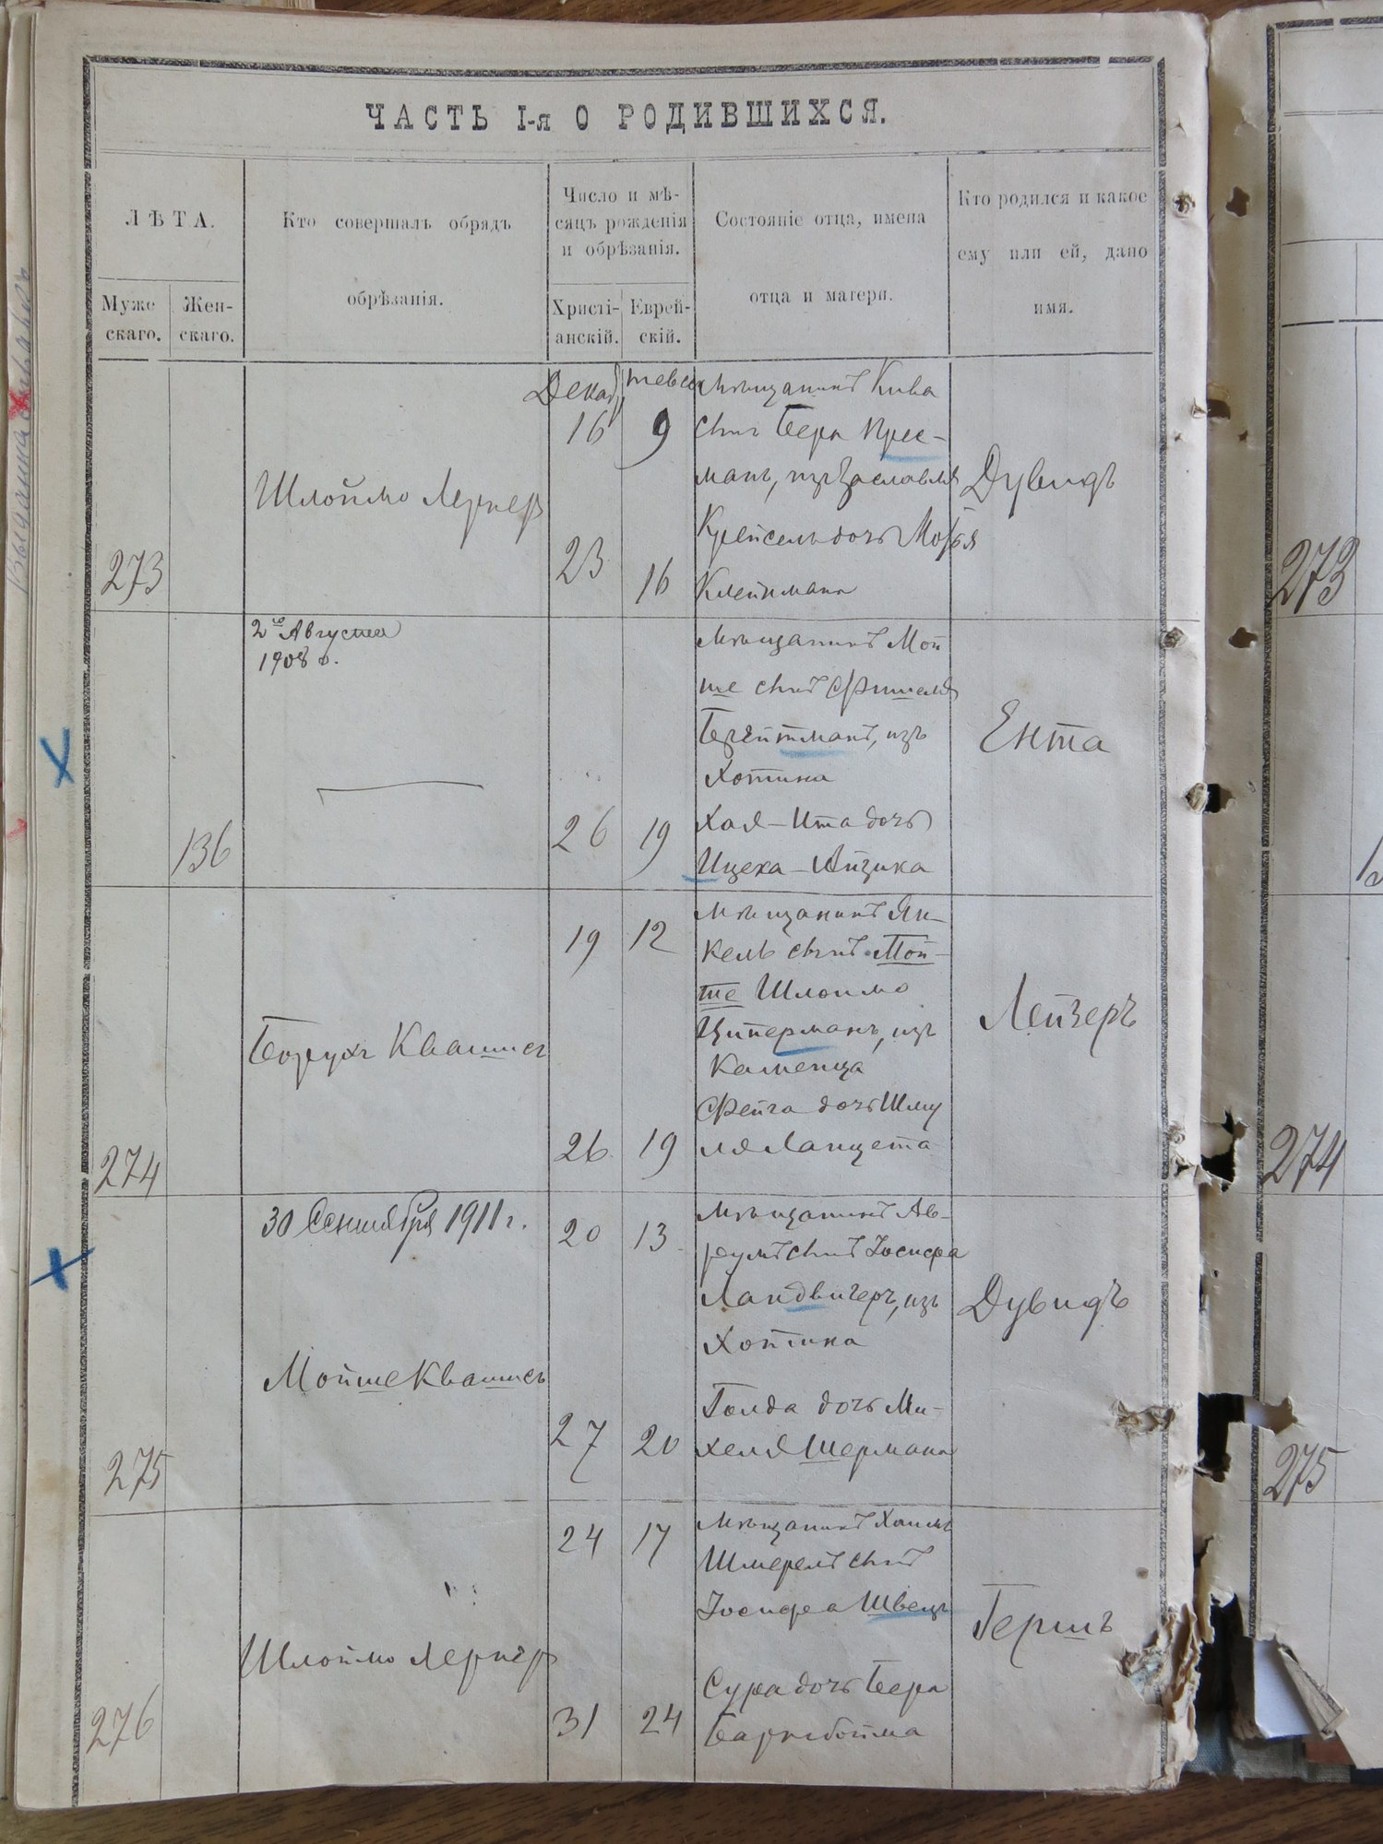 ЧАСТЬ I-я О РОДИВШИХСЯ.
ЛѢТА.
Муже
скаго.
Жен-
скаго.
Кто совершалъ обрядъ
обрѣзанія.
Число и мѣ-
сяцъ рожденія
и обрѣзанія.
Христі-
анскій.
Еврей-
скій.
Состояніе отца, имена
отца и матери.
Кто родился и какое
ему или ей, дано
имя.
273
Шлоймо Лернеръ
Декаб.
16
23
тевеса
9
16
Мѣщанинъ Кива
сынъ Бера Крес-
манъ, изъ Заславля
Крейсель дочь
Клейнмана
Дувидъ
273
136
2го Августа
1908 г.
26
19
Мѣщанинъ Мой
ше сынъ Фишеля
изъ
Хотина
Хая-Ита дочь
Ицека-Айзика
Ента
274
Борухъ Квашисъ
19
26
12
19
Мѣщанинъ Ян-
кель сынъ Мой-
ше Шлоймо
Циперманъ, изъ
Каменца
Фейга дочь Шму
ля Ланцета
Лейзеръ
274
275
30 Сентября 1911 г.
Мойше Квашисъ
20
27
13
20
Мѣщанинъ Ав-
румъ сынъ Іосифа
Ландвигеръ, изъ
Хотина
Голда дочь Ми-
хеля Шермана
Дувидъ
275
276
Шлоймо Лернеръ
24
31
17
24
Мѣщанинъ Хаимъ
Шмерель сынъ
Іосифа Швецъ
Сура дочь Бера
Гершъ